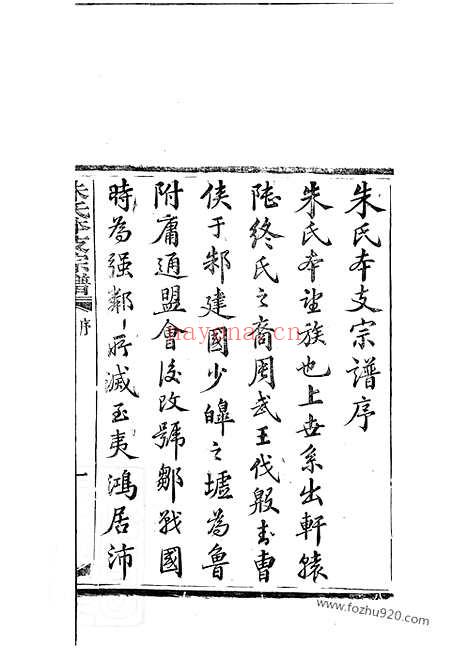 朱氏本支宗譜序
朱氏本望族也上世系出軒轅
陸終氏之裔周武王伐殷封曹
俠于邾建國少皥之墟為魯
附庸通盟會後改號鄒戰國
時為强鄰所滅至夷鴻居沛
朱氏本支宗譜
序
一
nayona.cn
www.fozhu920.com